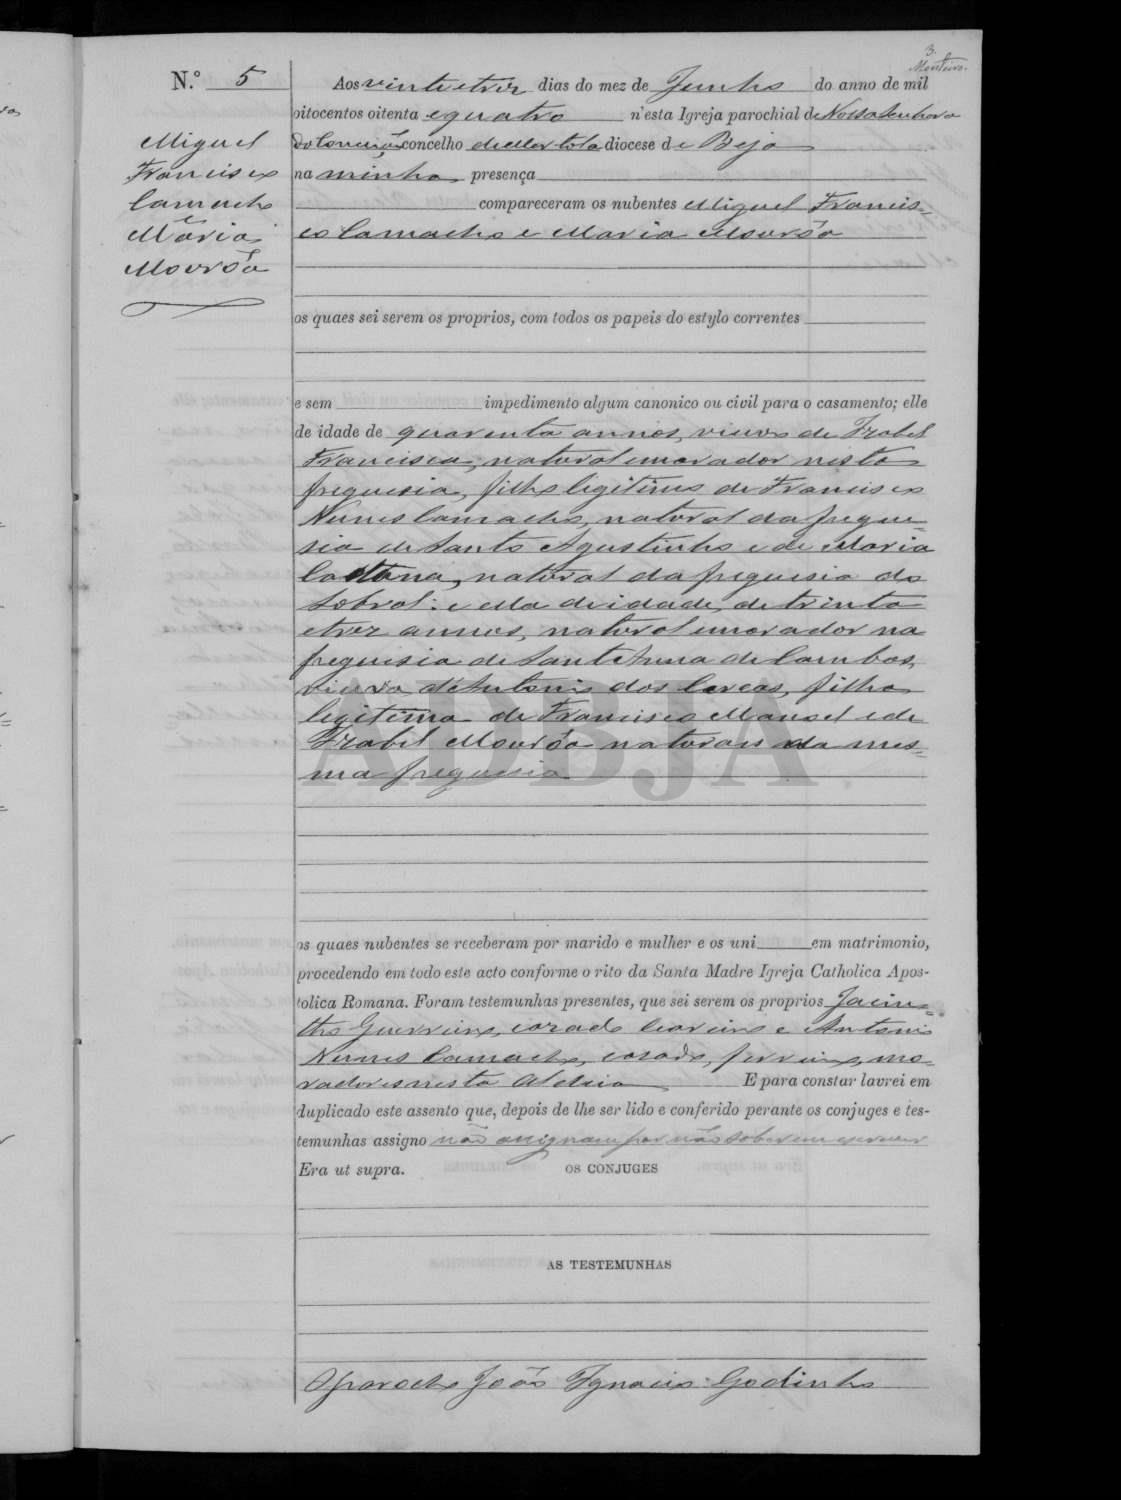 3.
Monteiro.
N.º 5
Miguel
Francisco
Camacho
e
Maria
Mourôa
Aos vinte e trez dias do mez de Junho do anno de mil
oitocentos oitenta e quatro n'esta Igreja parochial de Nossa Senhora
da Conceição concelho de Mertola diocese de Beja
na minha presença
compareceram os nubentes Miguel Francis-
co Camacho e Maria Mourôa
os quaes sei serem os proprios, com todos os papeis do estylo correntes
e sem impedimento algum canonico ou civil para o casamento; elle
de idade de quarenta annos, viuvo de Izabel
Francisca, natural e morador nesta
freguesia, filho legitimo de Francisco
Nunes Camacho, natural da fregue=
sia de Santo Agustinho e de Maria
natural da freguesia do
Sobral: e ella de idade, de trinta
e trez annos, natural e morador na
freguesia de Sant'Anna de Cambas,
viuva d'Antonio dos filha
legitima de Francisco Manoel e de
Izabel Mourôa naturais da mes=
ma freguesia
ADBJA
os quaes nubentes se receberam por marido e mulher e os uni em matrimonio,
procedendo em todo este acto conforme o rito da Santa Madre Igreja Catholica Apos-
tolica Romana. Foram testemunhas presentes, que sei serem os proprios Jacin=
tho Guerreiro, cazado e Antonio
Nunes Camacho, casado, ferreiro, mo-
radores nesta Aldeia E para constar lavrei em
duplicado este assento que, depois de lhe ser lido e conferido perante os conjuges e tes-
temunhas assigno não assignam por não saberem escrever
Era ut supra.
OS CONJUGES
AS TESTEMUNHAS
O parocho João Ignacio Godinho